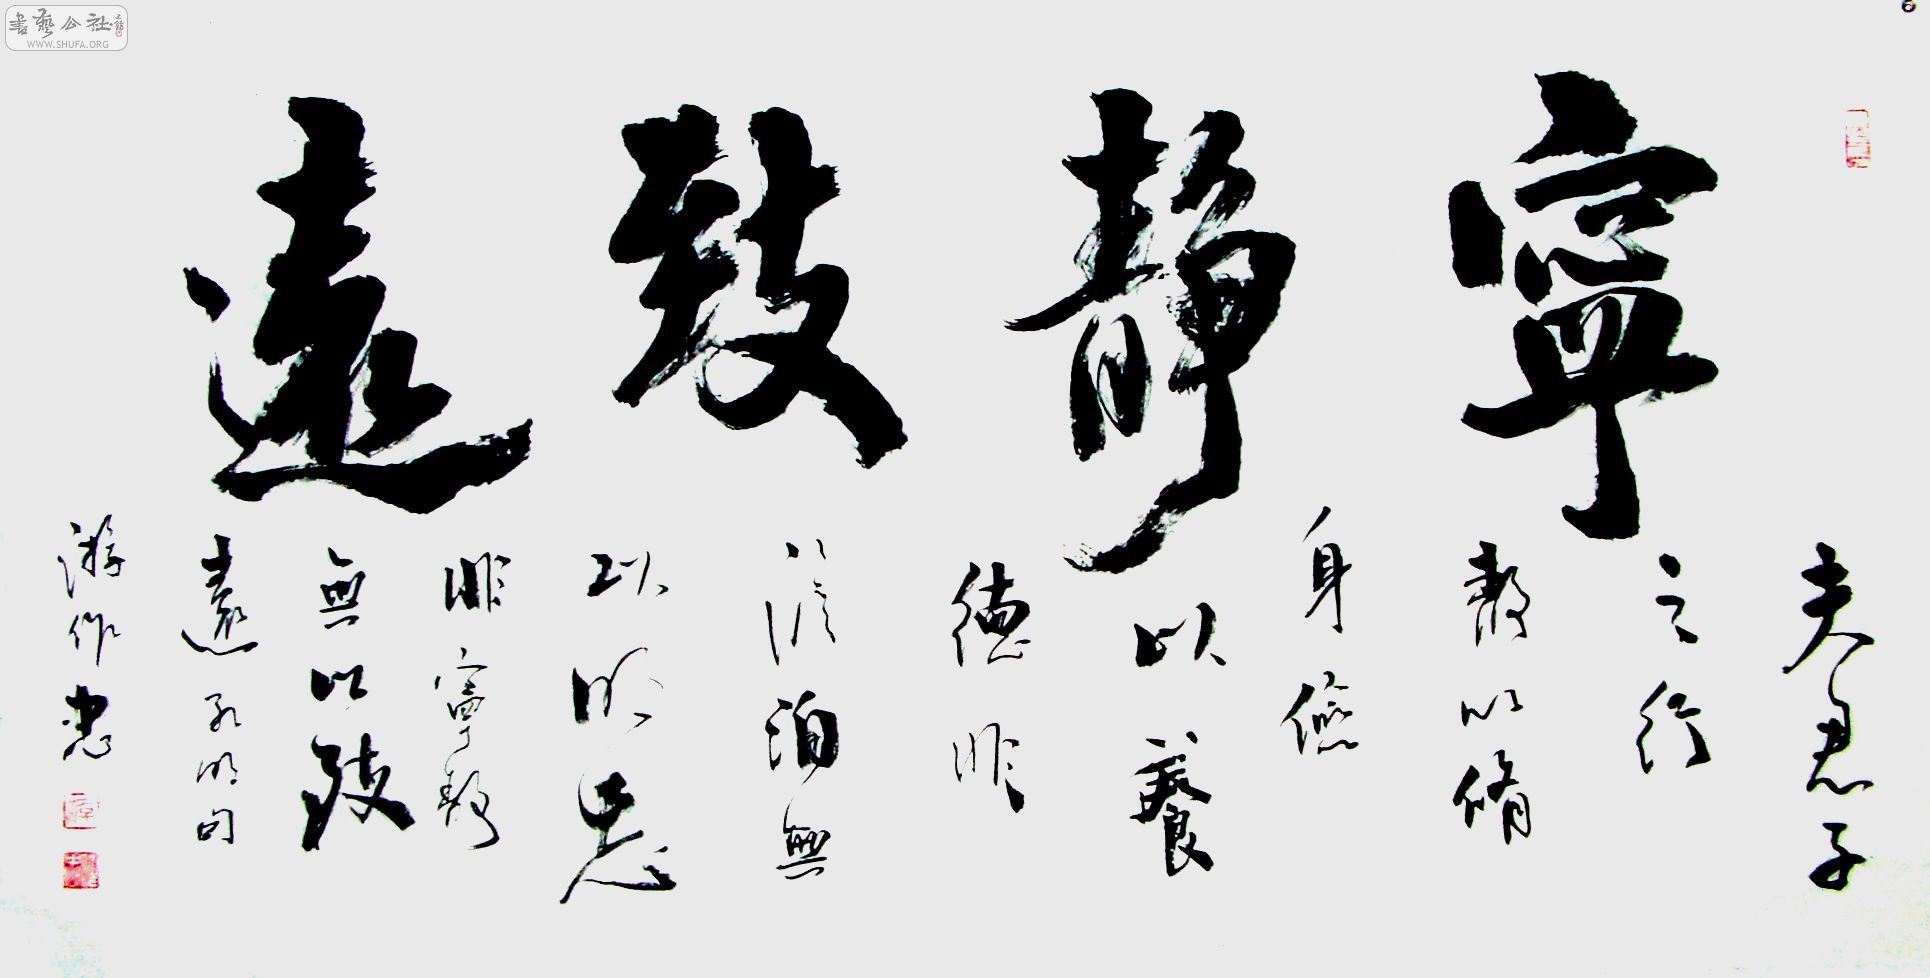 書藝公社
WWW.SHUFA.ORG
寧靜致遠
夫君子
之行
靜以脩
身儉
以養
德非
澹泊無
以明志
非寧靜
無以致
遠 孔明句
游作忠